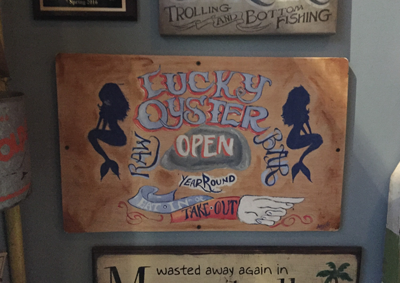 Spring 2016
TROLLING
AND BOTTOM
FISHING
LUCKY
OYSTER
RAW BAR
OPEN
YEAR ROUND
TAKE OUT
wasted away again in